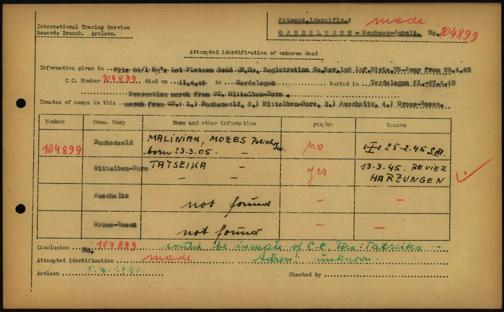 International Tracing Service
Records Branch. Arolsen.
made
GARDELEGEN - Sachsen-Anhalt.
No. 104899
Attempted identification of unknown dead
Information given on
Registration
US-Army from 25.4.45
C.C. Number 104899 died on 11.4.45 in Gardelegen buried in Gardelegen
Evacuation march from CC. Mittelbau-Dora.
Inmates of camps in this march from CC. 1.) Buchenwald, 2.) Mittelbau-Dora, 3.) Auschwitz, 4.) Gross-Rosen
Number Conc. Camp Name and other information yes/no Reason
104899 Buchenwald MALINIAK, MOZES no 25-2-45
born 23.3.05.
Mittelbau-Dora TATSZIKA yes 13-3-45. REVIER
HARZUNGEN
Auschwitz not found - -
Gross-Rosen not found - -
Conclusion No. 104899 could be inmate of C.C.
Attempted identification made unknown
Arolsen Checked by